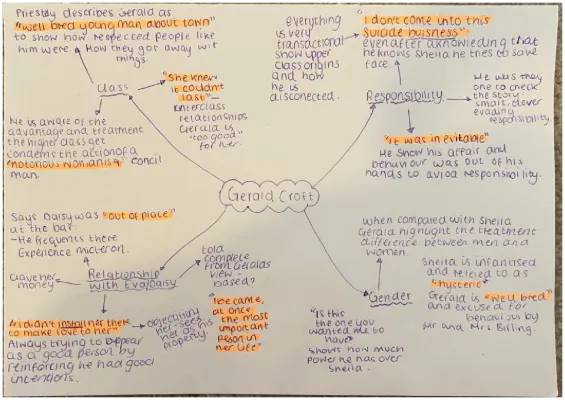 Priestly describes Gerald as
"well bred young man about town"
to show how respected people like
him were
How they got away wit
things.
Class
"She knew
it couldn't
last" –
interclass
relationships
Gerald is
"too good"
for her.
He is aware of the
advantage and treatment
the higher class get
condems the action of a
"notorious womaniser" concil
man.
everything
is very
transactional
show upper
class origins
and how
he is
disconected.
"I don't come into this
suicide buisness"
even after aknowleding that
he knows Sheila he tries to save
face.
Responsibility
He was they
one to check
the story.
smart, clever
evading
responsibility.
"it was inevitable"
He show his affair and
behaviour was out of his
hands to aviod responsibility.
Gerald Croft
Says Daisy was "out of place"
at the bar
- He frequents there
Experience
Gave her
money
Relationship
with Eva/Daisy
told
complete
from Geralds
view –
based?
"I didn't install her there
to make love to her"
Always trying to appear
as a good person by
reinforcing he had good
intensions.
objectifying
her - sees
her as his
property.
"I became,
at once
the most
important
person in
her life"
When compared with Sheila
Gerald highlight the treatment
difference between men and
women.
Gender
Sheila is infantised
and refered to as
"hysteric"
Gerald is "well bred"
and excused for
behaviour by
Mr and Mrs Birling.
"Is this
the one you
wanted me to
have"
shows how much
power he has over
Sheila.